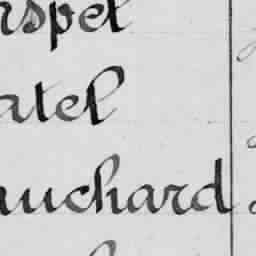 rspel
atel
uuchard